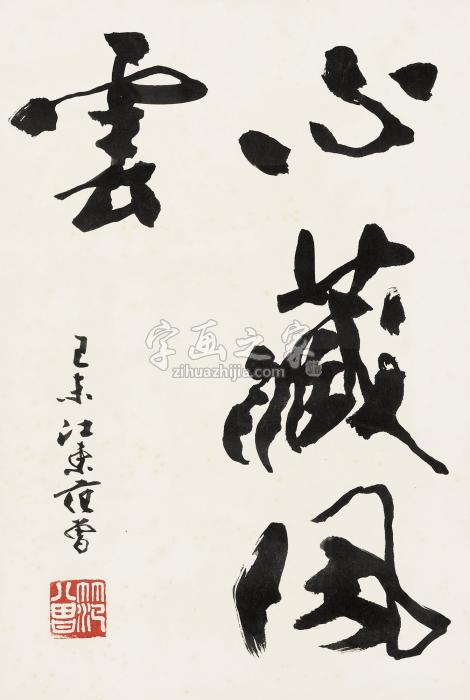 心藏風
雲
己未江東范曾
范曾
字画之家
zihuazhijia.com